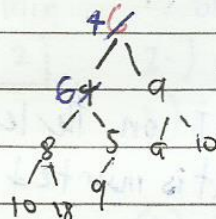 4 6
6 4 9
8 5 9 10
10 18 9